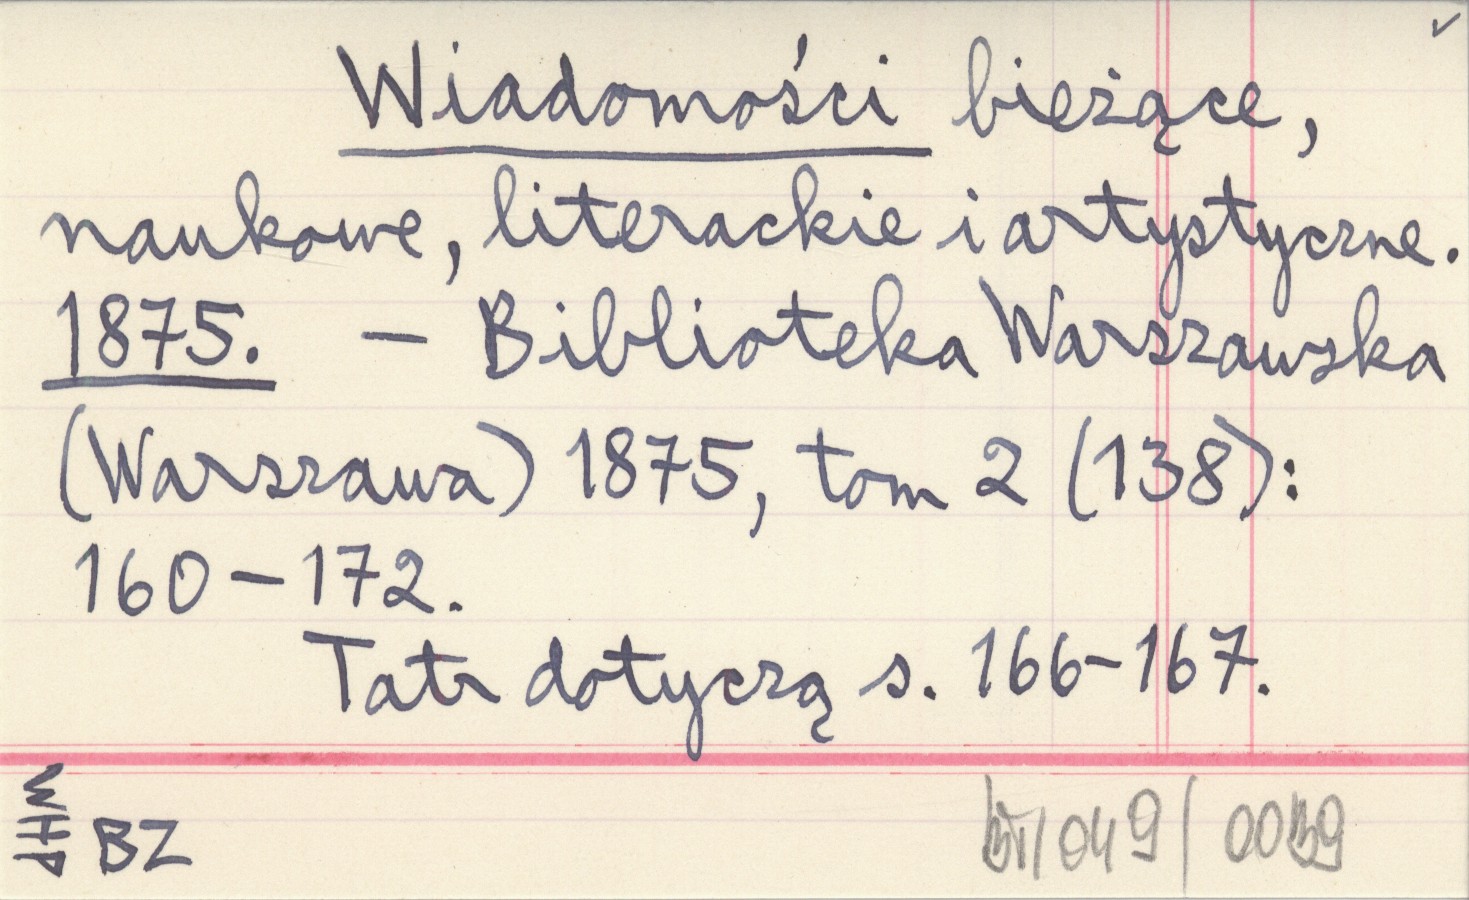 Wiadomości bieżące,
naukowe, literackie i artystyczne.
1875. — Biblioteka Warszawska
(Warszawa) 1875, tom 2 (138):
160–172.
Tatr dotyczą s. 166–167.
BZ
049/0039